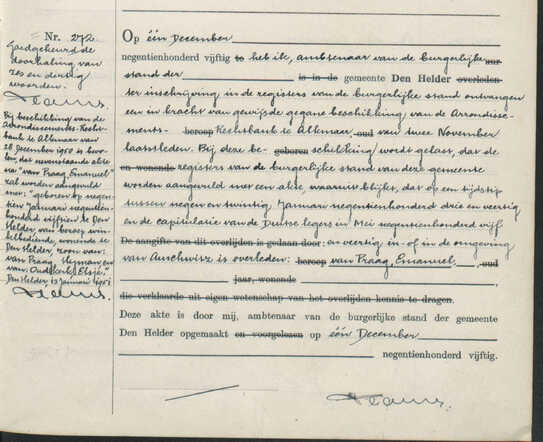 Nr. 272
Goedgekeurd de
doorhaling van
zes en dertig
woorden.
Bij beschikking van de
Arrondissements-Recht-
bank te Alkmaar van
28 December 1950 is bevo-
len, dat nevenstaande akte
na "van Praag, Emanuel"
zal worden aangevuld
met: "geboren op negen-
tien Januari negentien-
honderd vijftien te Den
Helder, van beroep win-
kelbediende, wonende te
Den Helder, zoon van:
van Praag, Hyman en
van: Oudkerk, Elsje."
Den Helder, 12 Januari 1951
Op één December
negentienhonderd vijftig te heb ik, ambtenaar van de burgerlijke uur
stand der is in de gemeente Den Helder overleden
ter inschrijving in de registers van de burgerlijke stand ontvangen
een in kracht van gewijsde gegane beschikking van de Arrondisse-
ments- beroep Rechtbank te Alkmaar, oud van twee November
laatstleden. Bij deze be- geboren schikking wordt gelast, dat de
en wonende registers van de burgerlijke stand van deze gemeente
worden aangevuld met een akte, waaruit blijkt, dat op een tijdstip
tussen negen en twintig Januari negentienhonderd drie en veertig
en de capitulatie van de Duitse legers in Mei negentienhonderd vijf
De aangifte van dit overlijden is gedaan door: en veertig in- of in de omgeving
van Auschwitz is overleden: beroep van Praag, Emanuel, oud
jaar, wonende
die verklaarde uit eigen wetenschap van het overlijden kennis te dragen.
Deze akte is door mij, ambtenaar van de burgerlijke stand der gemeente
Den Helder opgemaakt en voorgelezen op één December
negentienhonderd vijftig.